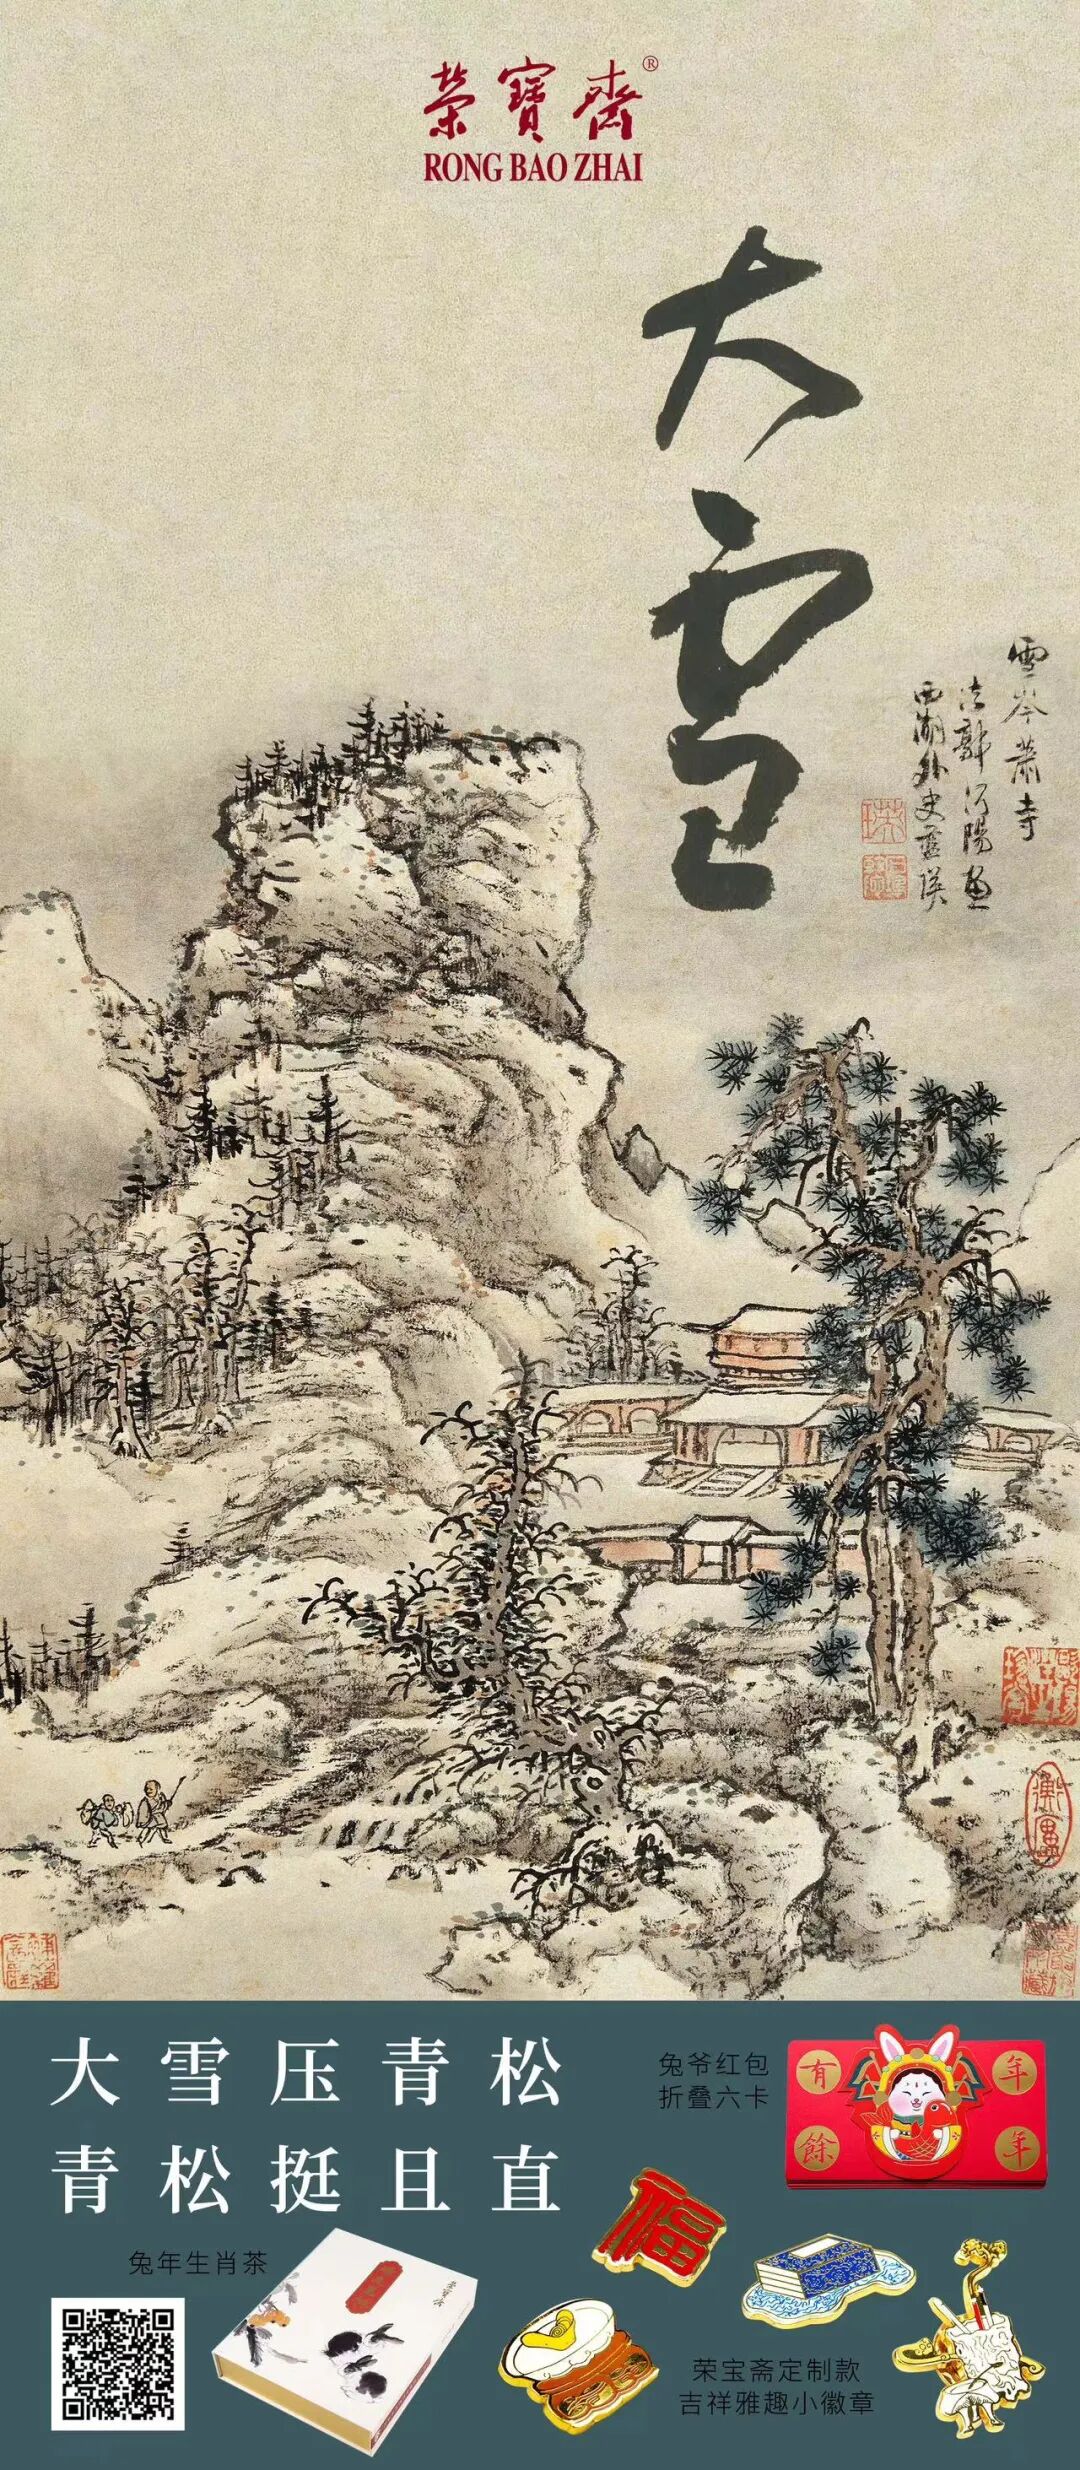 榮寶齋®
RONG BAO ZHAI
大雪
雪岑蕭寺
法郭河陽畫
西湖外史藍瑛
大雪压青松
青松挺且直
兔爷红包
折叠六卡
有餘
年年
福
兔年生肖茶
荣宝斋定制款
吉祥雅趣小徽章